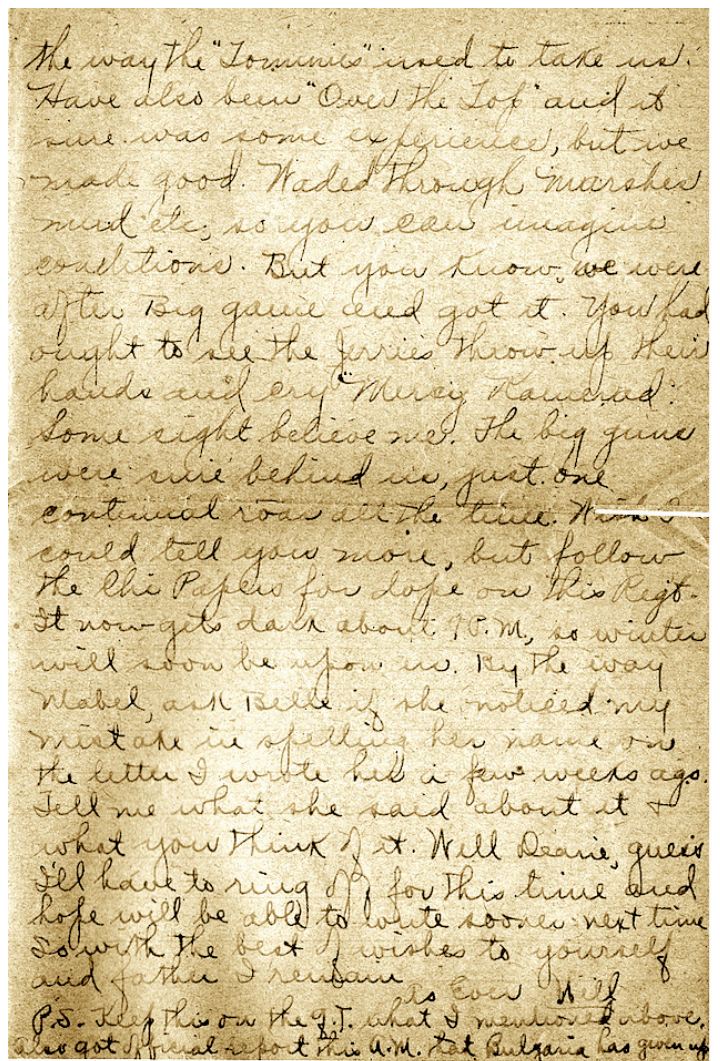 the way the "Tommies" used to take us.
Have also been "Over the Top" and it
sure was some experience, but we
made good. Waded through marshes
mud etc, so you can imagine
conditions. But you know, we were
after Big game and got it. You had
ought to see the Jerries throw up their
hands and cry "Mercy Kamerad".
Some sight believe me. The big guns
were sure behind us, just one
continual roar all the time. Wish I
could tell you more, but follow
the Chi Papers for dope on this Regt.
It now gets dark about 7 P.M., so winter
will soon be upon us. By the way
Mabel, ask Belle if she noticed my
mistake in spelling her name on
the letter I wrote her a few weeks ago.
Tell me what she said about it +
what you think of it. Well Dearie, guess
I'll have to ring off for this time and
hope will be able to write sooner next time
So with the best of wishes to yourself
and father I remain
As Ever Will
P.S. Keep this on the Q.T. what I mentioned above.
Also got official report this A.M. that Bulgaria has given up